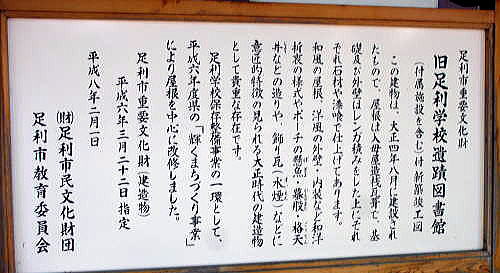 足利市重要文化財
旧足利学校遺蹟図書館
(付属施設を含む)付 新築竣工図
この建物は、大正四年八月に建設され
たもので、屋根は入母屋造桟瓦葺で、基
礎及び外壁はレンガ積みをした上にそれ
ぞれ石材や漆喰で仕上げてあります。
和風の屋根、洋風の外壁・内装など和洋
折衷の様式やポーチの懸魚・蟇股・格天
井などの造りや、飾り瓦(水煙)などに
意匠的特徴の見られる大正時代の建造物
として貴重な存在です。
足利学校保存整備事業の一環として、
平成六年度県の「輝くまちづくり事業」
により屋根を中心に改修しました。
足利市重要文化財(建造物)
平成六年三月二十二日 指定
平成八年二月一日
(財)足利市民文化財団
足利市教育委員会